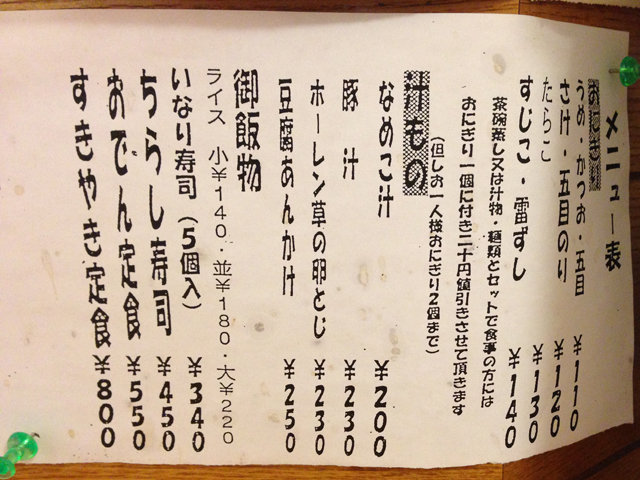 メニュー表
おにぎり
うめ・かつお・五目 ¥110
さけ・五目のり ¥120
たらこ ¥130
すじこ・雷ずし ¥140
茶碗蒸し又は汁物・麺類とセットで食事の方には
おにぎり一個に付き二十円値引きさせて頂きます
(但しお一人様おにぎり2個まで)
汁もの
なめこ汁 ¥200
豚汁 ¥230
ホーレン草の卵とじ ¥230
豆腐あんかけ ¥250
御飯物
ライス 小¥140・並¥180・大¥220
いなり寿司(5個入) ¥340
ちらし寿司 ¥450
おでん定食 ¥550
すきやき定食 ¥800